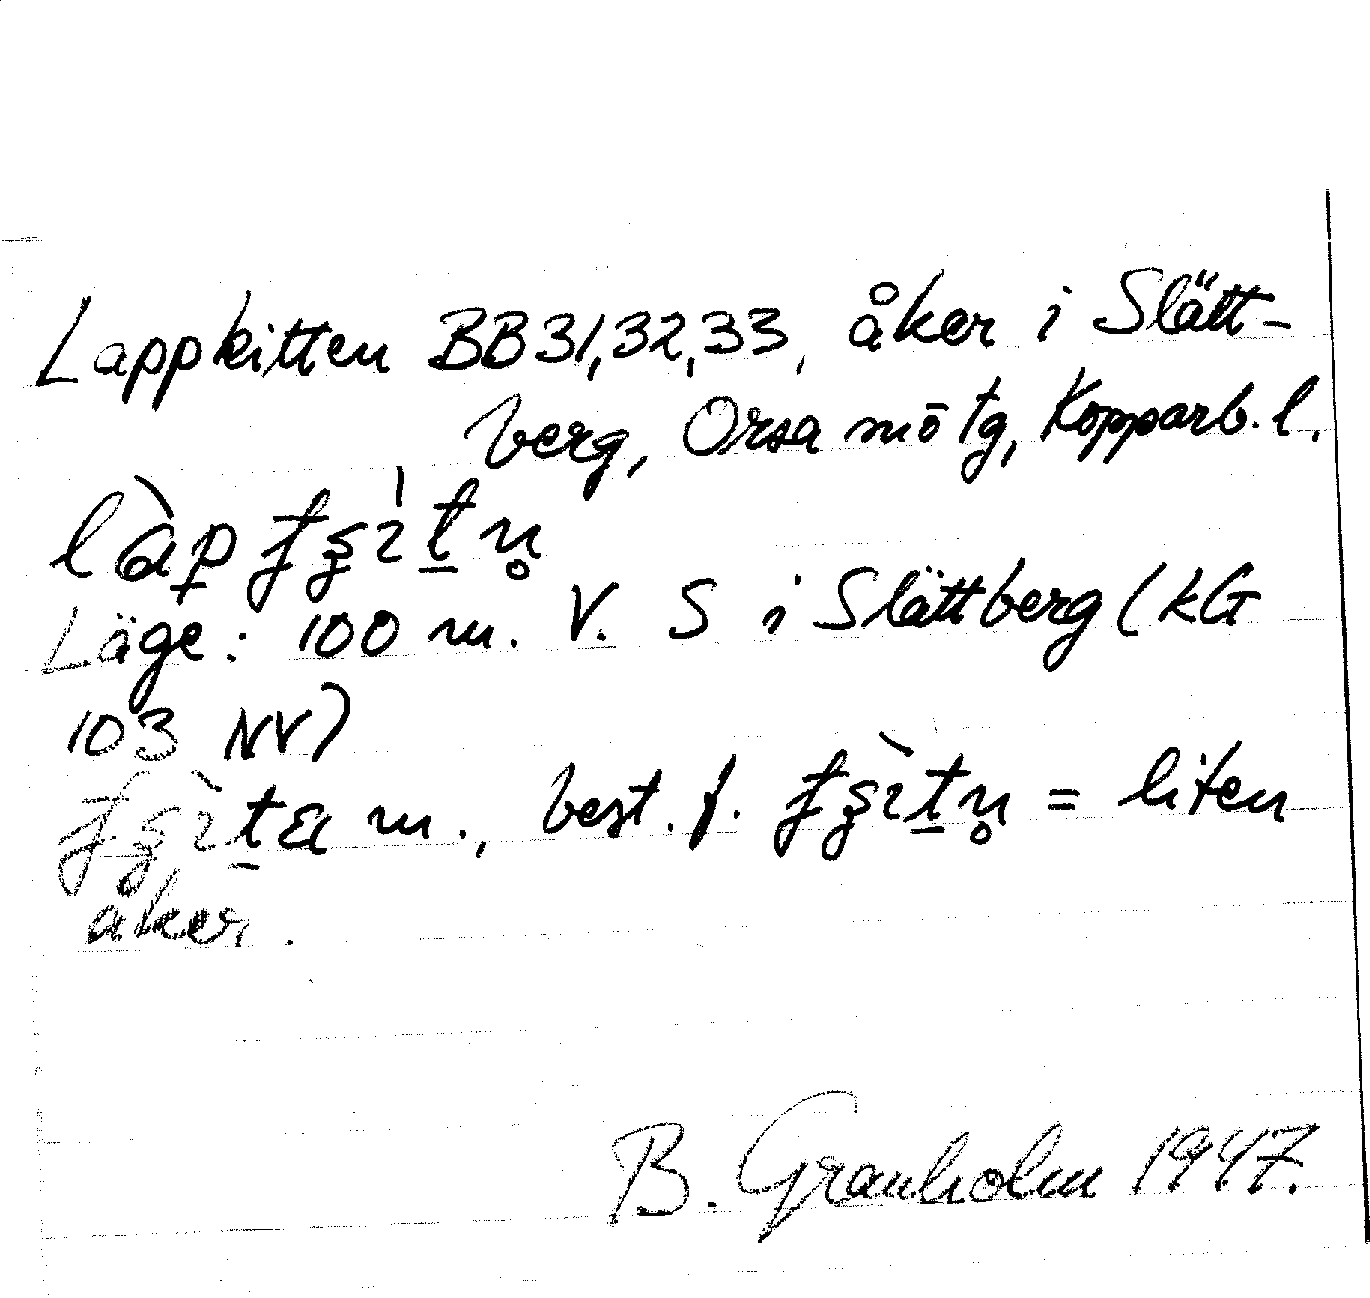 Lappkitten BB31,32,33, åker i Slätt-
berg, Orsa mō tg, Kopparb. l.
Läge: 100 m. V. S i Slättberg (kG
103 NV)
m., best. f. = liten
åker.
B. Granholm 1947.